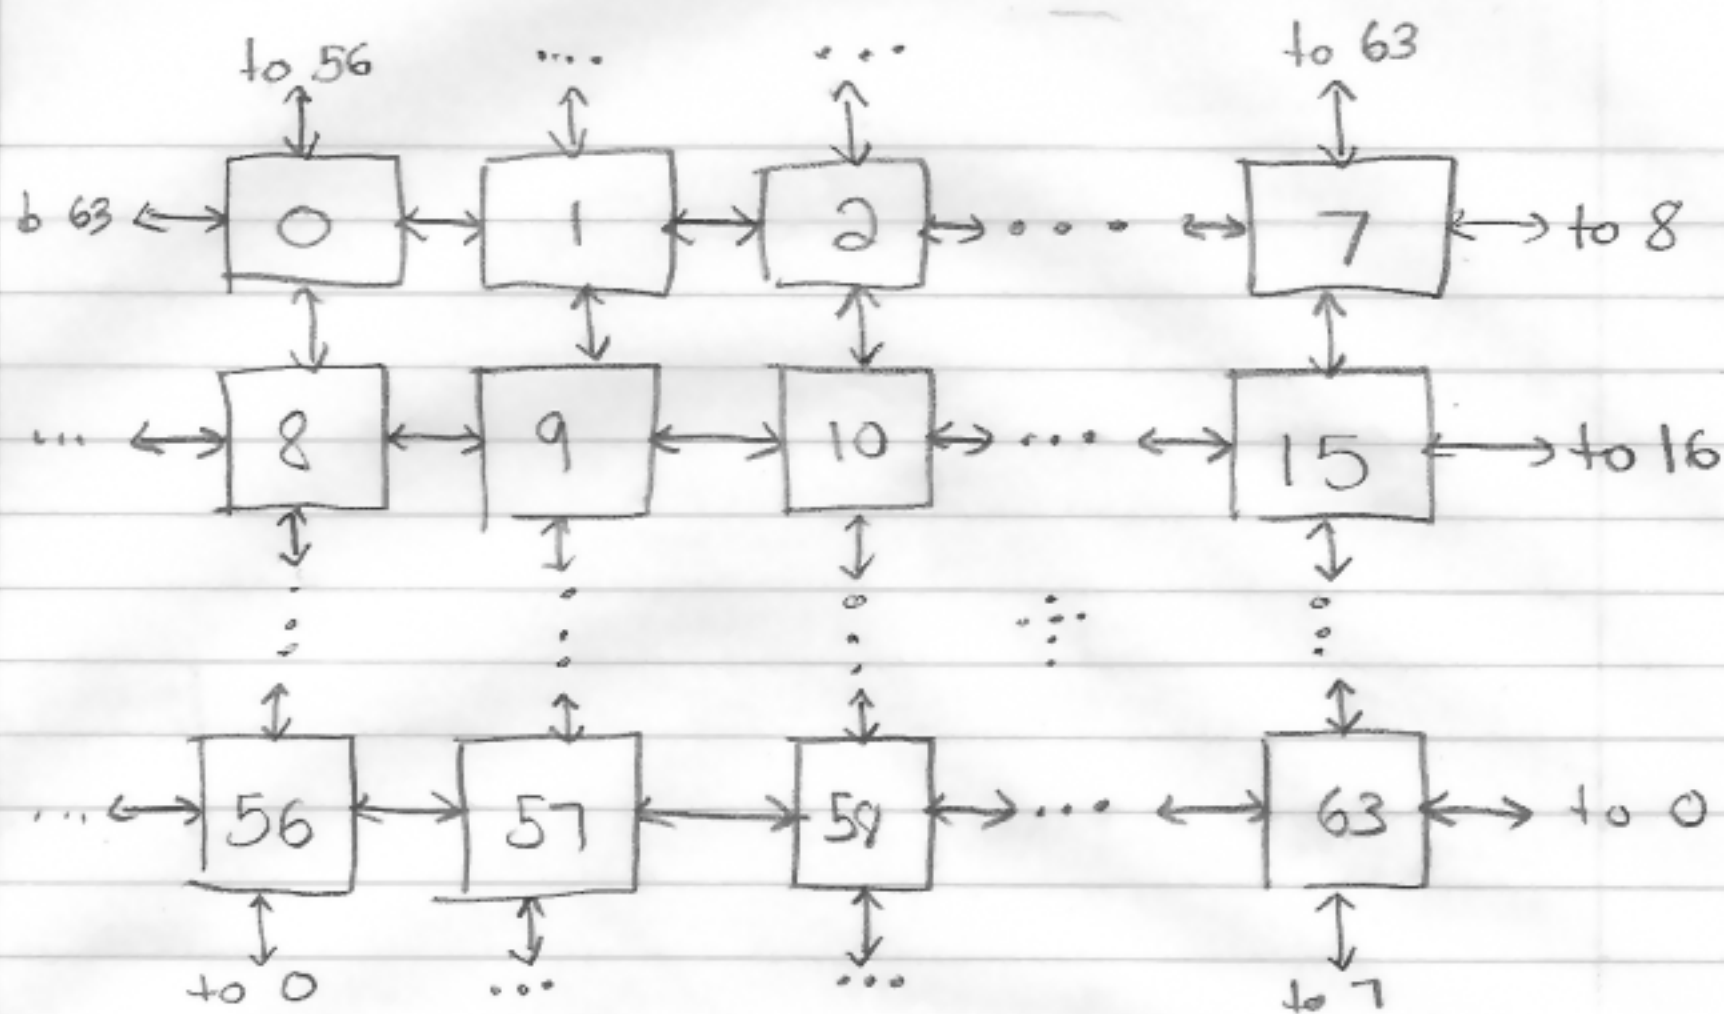 to 56 .... ... to 63
to 63 0 1 2 ... 7 to 8
... 8 9 10 ... 15 to 16
... 56 57 58 ... 63 to 0
to 0 ... ... to 7